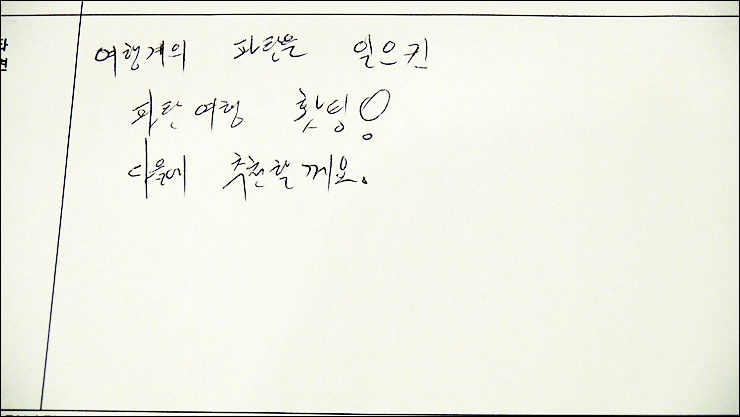 여행계의 파란을 일으킨
파란여행 홧팅!
다음에 추천할께요.